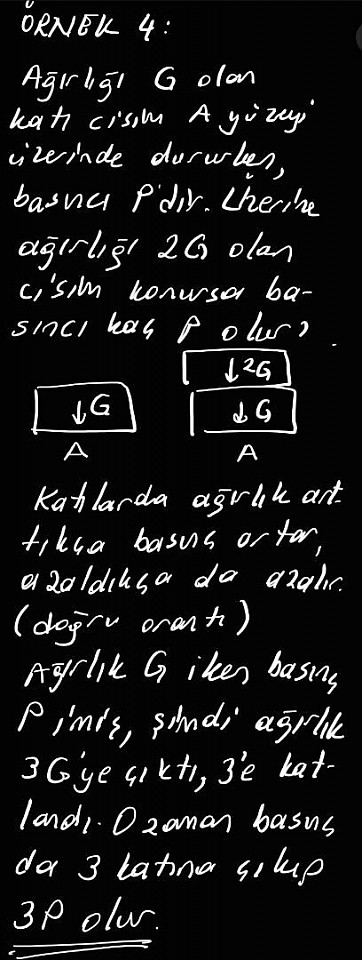 ÖRNEK 4:
Ağırlığı G olan
katı cisim A yüzeyi
üzerinde dururken,
basıncı P'dir. Üzerine
ağırlığı 2G olan
cisim konursa ba-
sıncı kaç P olur?
↓2G
↓G ↓G
A A
Katılarda ağırlık art-
tıkça basınç artar,
azaldıkça da azalır.
(doğru orantı)
Ağırlık G iken basınç
P imiş, şimdi ağırlık
3G'ye çıktı, 3'e kat-
landı. O zaman basınç
da 3 katına çıkıp
3P olur.